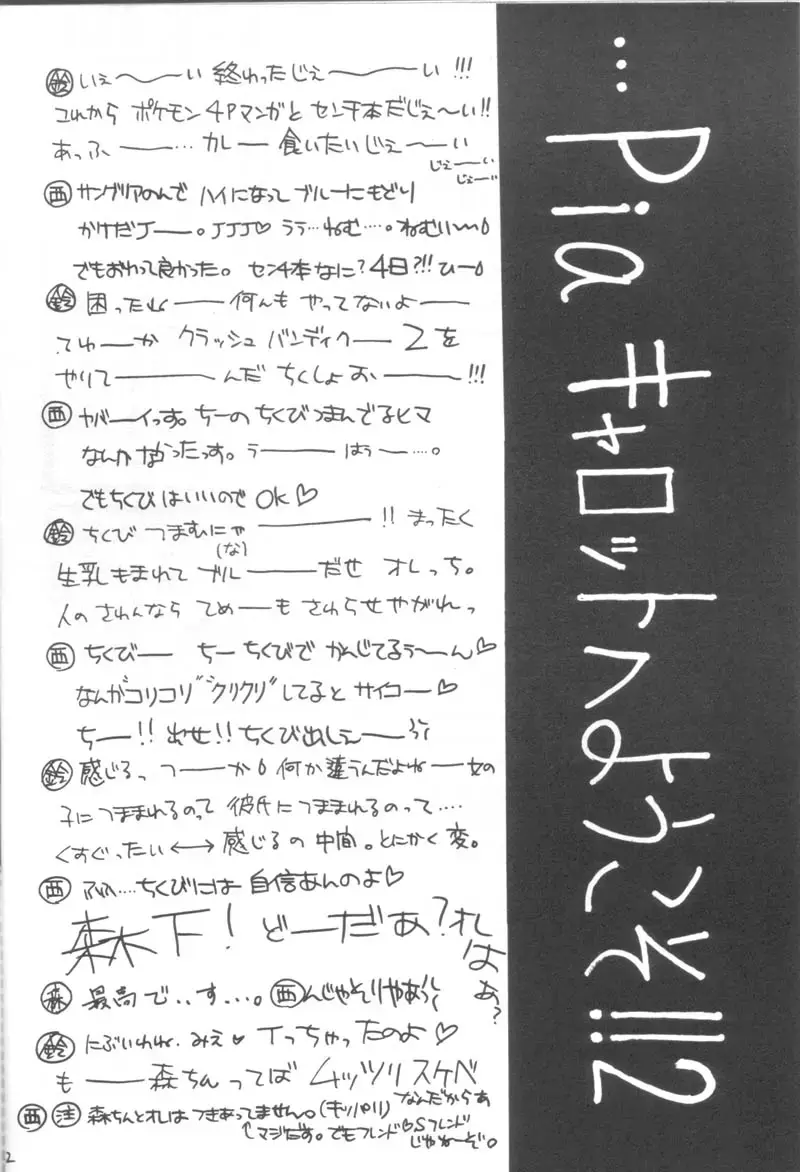 …Pia キャロットへようこそ!!2
鈴 いぇ〜〜い 終わったじぇ〜〜〜い !!!
これから ポケモン 4Pマンガと センチ本だじぇ〜い!!
あっふ ——… カレー 食いたいじぇ〜〜い
じぇ〜〜い
じぇ〜〜い
西 サングリアのんで ハイになって ブルーにもどり
かけだJ——。JJJ♡ ララ…ねむ…。ねむい〜〜
でもおわって良かった。 センチ本なに?4日?!! ひ—
鈴 困ったね —— 何んも やってないよ——
てゆ——か クラッシュ バンディクー 2を
やりて————んだ ちくしょお、———!!!
西 ヤバーイっす。ちーの ちくびつまんでるヒマ
なんかなかったっす。う—— はぅ——…。
でもちくび はいいので OK♡
鈴 ちくび つまむにゃ ————!! まったく
(な)
生乳もまれて ブル———だせ オレっち。
人の さわんなら てめ——も さわらせやがれっ
西 ちくび—— ちー ちくびで かんじてるぅ〜〜ん♡
なんがコリコリ"クリクリ"してると サイコー♡
ちー!! 出せ!! ちくび出しぇ——
鈴 感じるっ つ——か 何か違うんだよね——女の
子につままれるのって 彼氏につままれるのって….
くすぐったい ←→ 感じるの 中間。とにかく変。
西 ふふ….ちくびには 自信あんのよ♡
森木下! どーだあ?オレ
はぁ?
森 最高で・・す…。西 んじゃそりゃあぅ
鈴 にぶいわね. みえ♥ Tっちゃったのよ♡
も——森ちんってば ムッツリ スケベ
なんだからぁ
西 注 森ちんとオレは つきあってません。(キッパリ)
↑マジだす。でもフレンド♡Sフレンド
じゃねーぞ。
2